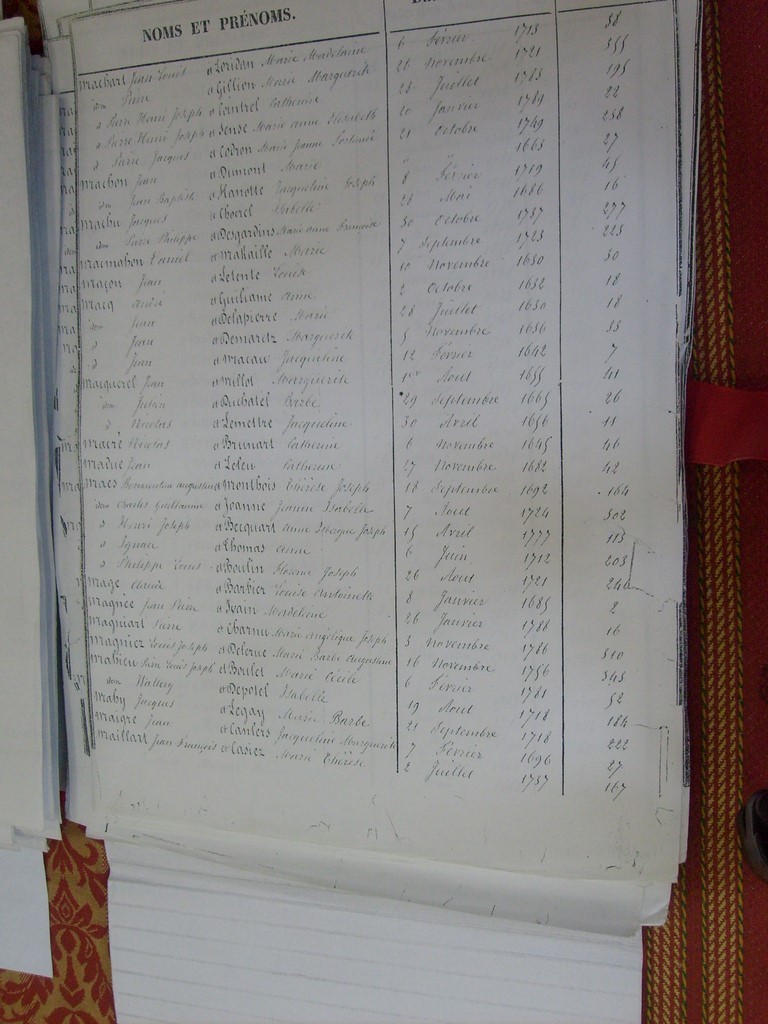 NOMS ET PRÉNOMS.
Machart Jean Louis à Loridan Marie Madelaine 6 Février 1713 38
idem Pierre à Gillion Marie Marguerite 26 Novembre 1721 355
d Pierre Henri Joseph à Cointrel Catherine 23 Juillet 1783 195
d Pierre Henri Joseph à Sense Marie Anne Elisabeth 20 Janvier 1789 22
d Pierre Jacques à Codron Marie Jeanne 21 Octobre 1749 258
Machon Jean à Dumont Marie " " 1663 27
idem Jean Baptiste à Hanotte Jacqueline Joseph 8 Février 1719 45
Machu Jacques à Chocrel Isbelle 28 Mai 1686 16
idem Pierre Philippe à Desgardins Marie Anne Françoise 30 Octobre 1737 277
Macmahon Daniel à Mahaille Marie 7 Septembre 1723 223
Maçon Jean à Letente Louise 10 Novembre 1630 30
Macq à Guiliame Anne 2 Octobre 1632 18
idem Jean à Delapierre Marie 28 Juillet 1630 18
d Jean à Demaretz Marguerite 5 Novembre 1636 33
d Jean à Macau Jacqueline 12 Février 1642 7
Macquerel Jean à Millot Marguerite 1er Aout 1655 41
idem Julien à Duchatel Barbe 29 Septembre 1665 26
d Nicolas à Lemettre Jacqueline 30 Avril 1656 11
Macré Nicolas à Brunart Catherine 6 Novembre 1645 46
Madue Jean à Leleu Catherine 27 Novembre 1682 42
Maes Bonaventure Augustin à Montbois Thérèse Joseph 18 Septembre 1692 164
idem Charles Guillaume à Joanne Jeanne Isabelle 7 Aout 1724 302
d Henri Joseph à Becquart Anne Isbergue Joseph 15 Avril 1777 113
d Ignace à Thomas Anne 6 Juin 1712 203
d Philippe Louis à Boulin Florence Joseph 26 Aout 1721 240
Mage Claude à Barbier Louise Antoinette 8 Janvier 1685 2
Magnée Jean Pierre à Jvain Madeleine 26 Janvier 1788 16
Magniart Pierre à Charnu Marie Angélique Joseph 3 Novembre 1786 310
Magniez Louis Joseph à Delerue Marie Barbe Augustine 16 Novembre 1756 343
Mahieu Pierre Louis Joseph à Boulet Marie Cécile 6 Février 1781 52
idem Wallery à Depotel Isabelle 19 Aout 1718 184
Mahy Jacques à Legay Marie Barbe 21 Septembre 1718 222
Maigre Jean à Canlers Jacqueline Marguerite 7 Février 1696 27
Maillart Jean François à Casiez Marie Thérèse 2 Juillet 1737 167